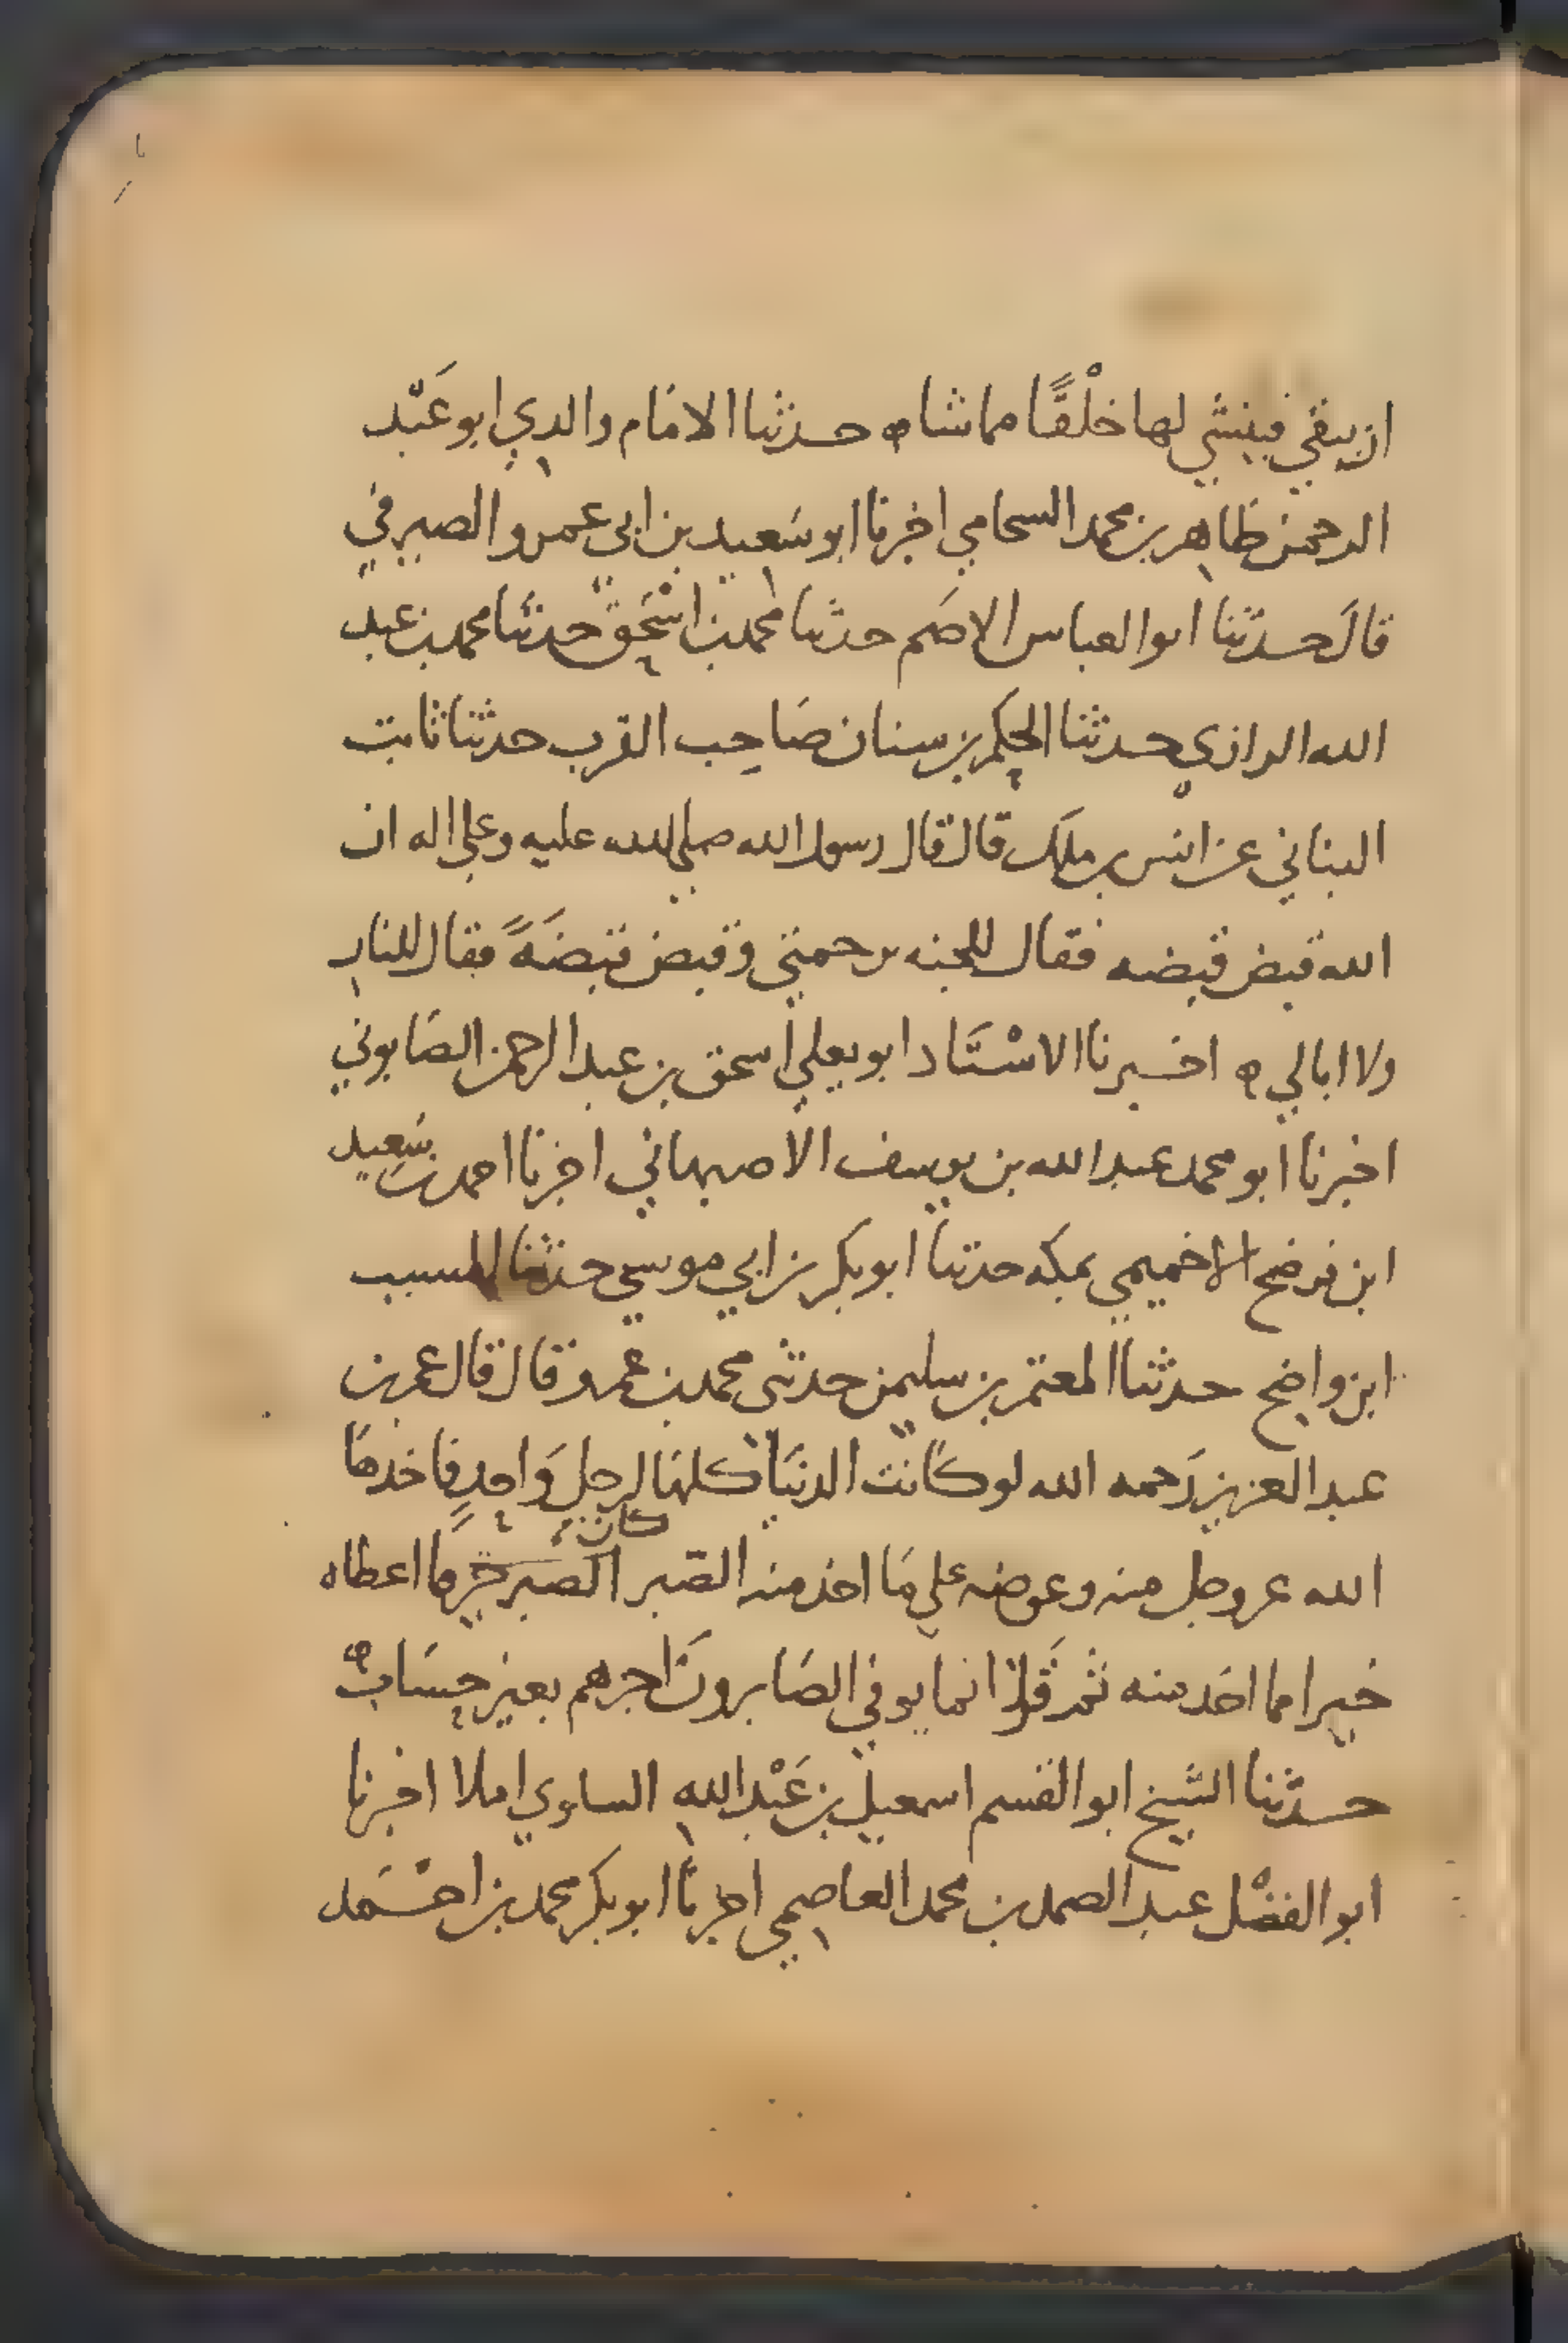 ان يبقي فينشي لها خلقًا مما شا ه حدثنا الامام والدي ابو عبد
الرحمن طاهر بن محمد السحامي اخبرنا ابو سعيد بن ابي عمرو الصيرفي
قال حدثنا ابو العباس الاصم حدثنا محمد بن اسحق حدثنا محمد بن عبد
الله الرازي حدثنا الحكم بن سنان صاحب القرب حدثنا ثابت
البناني عن انس بن ملك قال قال رسول الله صلي الله عليه وعلي اله ان
الله قبض قبضه فقال للجنه برحمتي وقبض قبضةً فقال للنار
ولا ابالي ه اخبرنا الاستاد ابو يعلي اسحق بن عبد الرحمن الصابوني
اخبرنا ابو محمد عبد الله بن يوسف الاصبهاني اخبرنا احمد بن سعيد
ابن فرضخ الاخميمي بمكه حدثنا ابو بكر بن ابي موسي حدثنا المسيب
ابن واضح حدثنا المعتمر بن سليمن حدثني محمد بن عمرو قال قال عمر بن
عبد العزيز رحمه الله لو كانت الدنيا كلها لرجل واحدٍ فاخدها
الله عز وجل منه وعوضه علي ما اخذ منه الصبر الصبر خير ما اعطاه
كان
خيرا مما اخد منه ثم قرا انما يوفي الصابرون اجرهم بغير حساب ه
حدثنا الشيخ ابو القسم اسمعيل بن عبد الله الساوي املا اخبرنا
ابو الفضل عبد الصمد بن محمد العاصمي اخبرنا ابو بكر محمد بن احمد